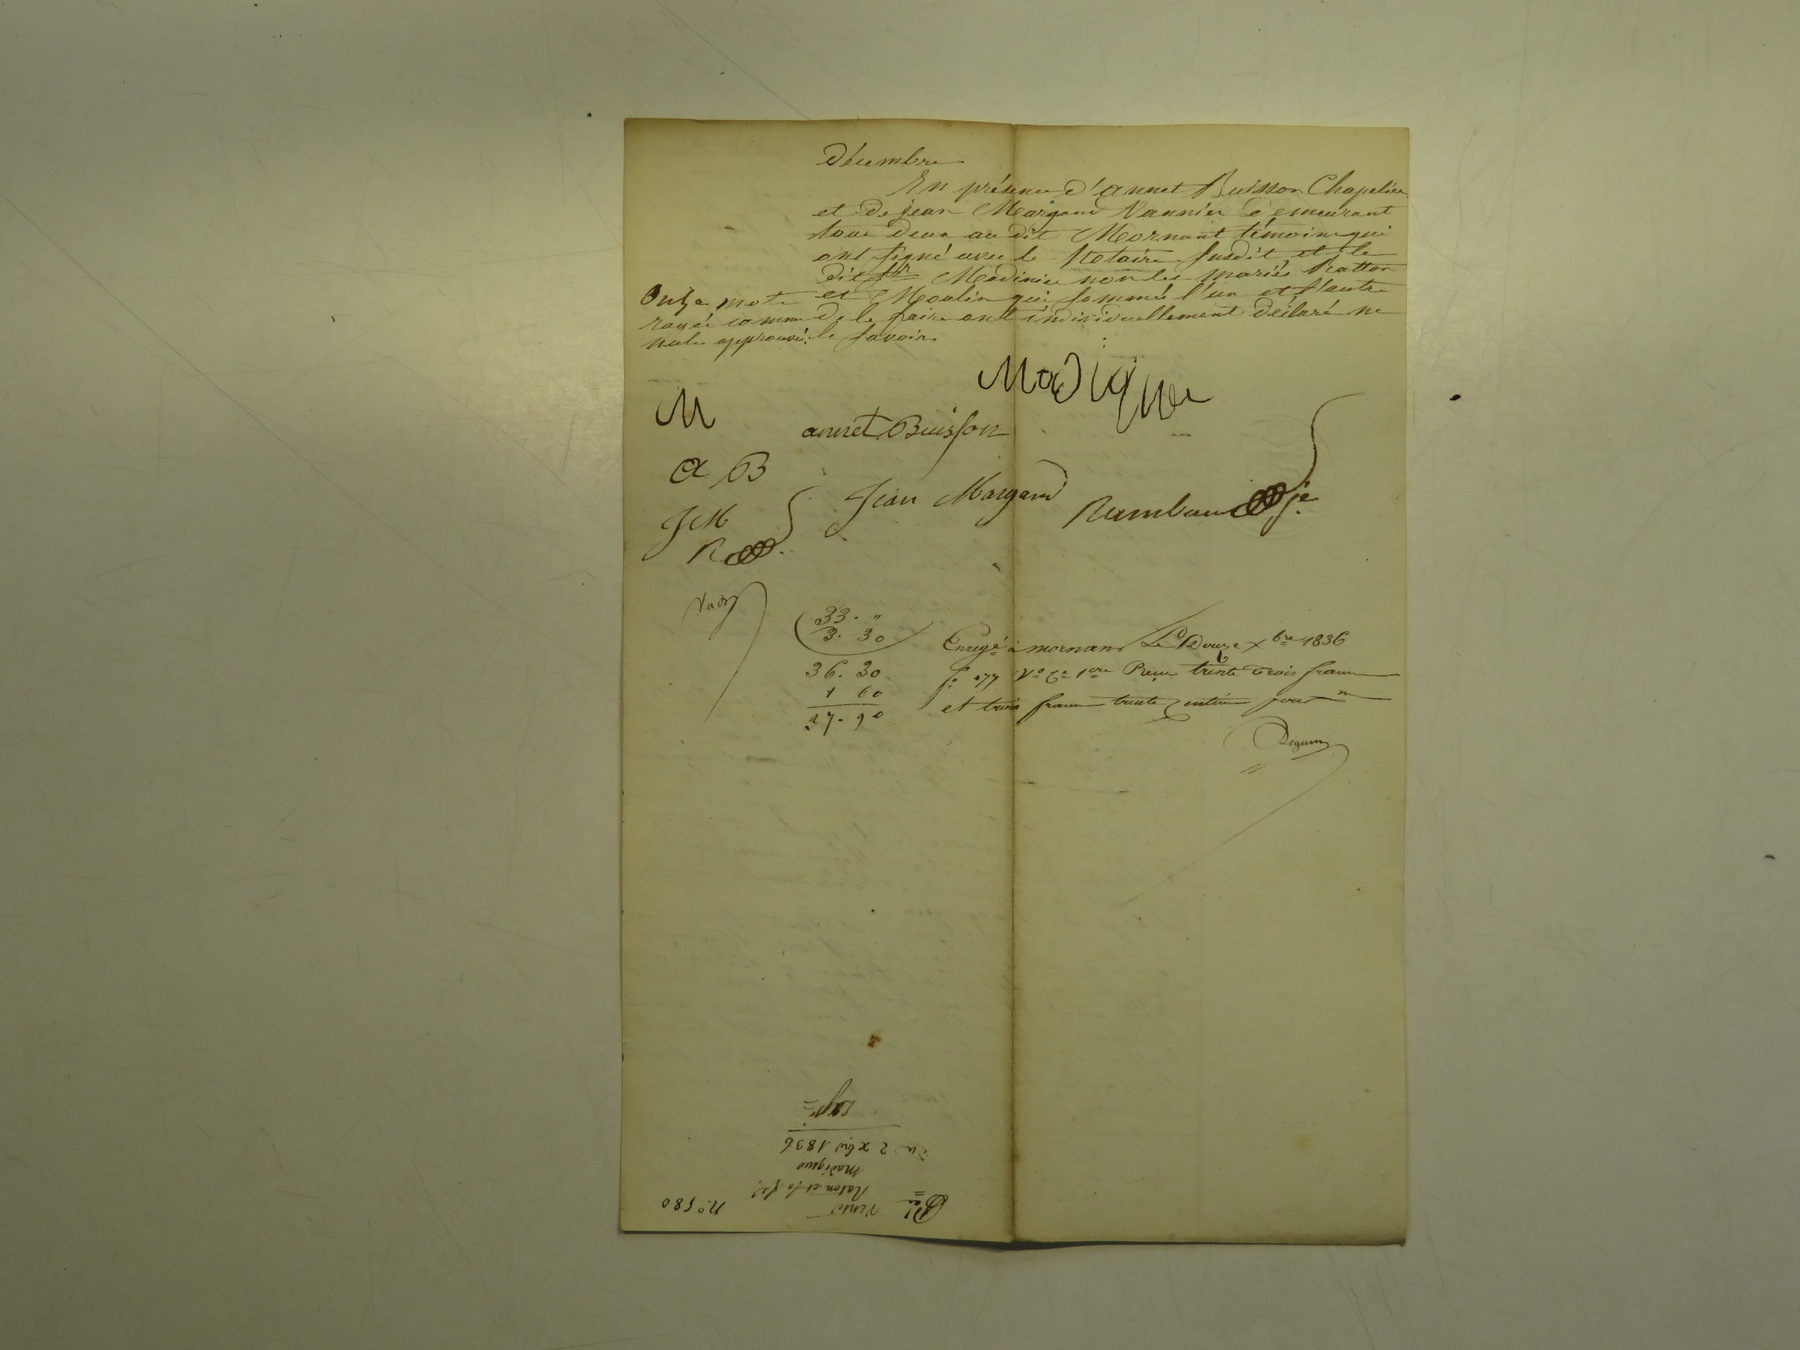 Décembre
En présence d'annet Buisson Chapelier
et de jean Margand Vannier demeurant
tous deux au dit Mornant témoins qui
ont signé avec le Notaire susdit et le
dit Sr Madinier non les mariés Ratton
et Moulin qui sommés l'un et l'autre
de le faire ont individuellement déclaré ne
le savoir.
Onze mots
rayés comme
nuls approuvé.
Madignier
M
annet Buisson
a B
Jean Margand
JM
Rambaud je
R
33. "
3. 30
36. 30
1 60
37. 90
Enregé à mornant Le Douze xbre 1836
fo 177 Vo Ce 1ere Reçu trente trois francs
et trois francs trente centimes pour
Bei
Vente
Raton et sa f
Madignier
du 2 xbre 1836
Expe
No 580